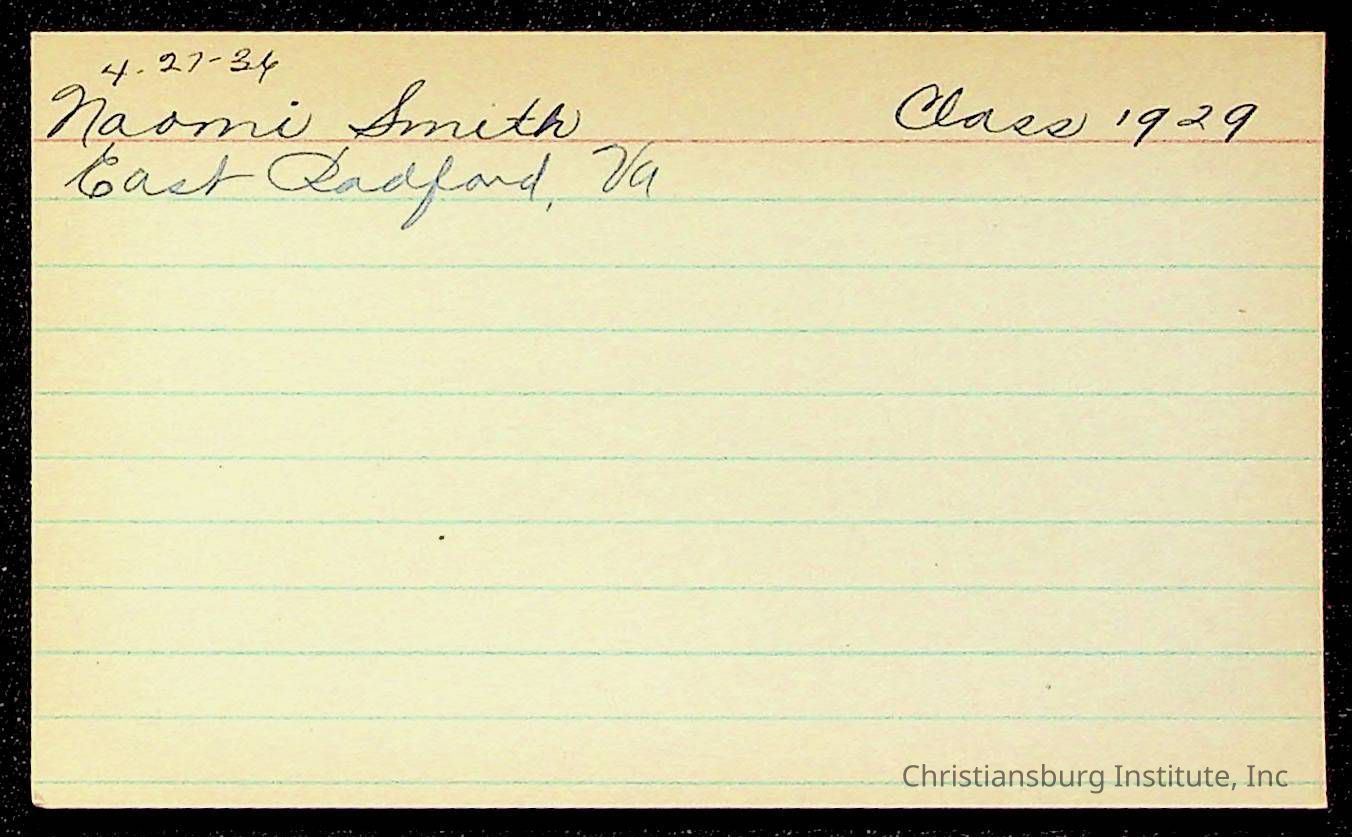 4-27-36
Naomi Smith Class 1929
East Radford, Va
Christiansburg Institute, Inc